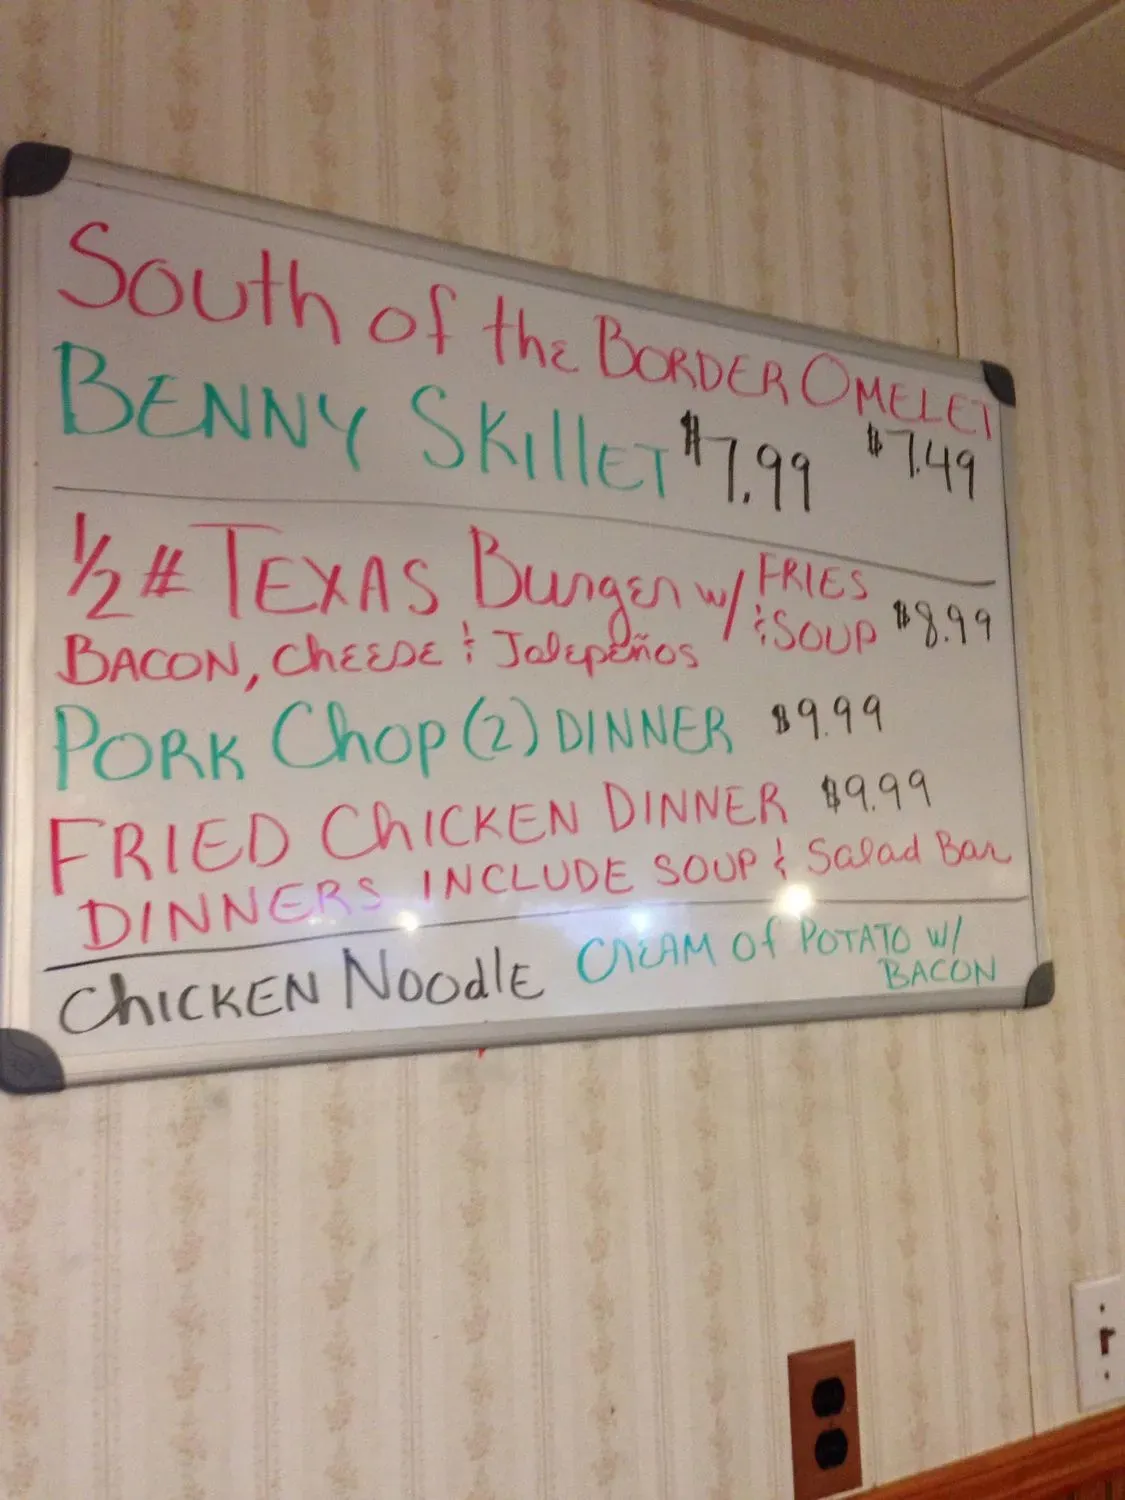 South of the BORDER OMELET
BENNY SKillET $7.99 $7.49
1/2 # TEXAS Burger w/ FRIES
& SOUP $8.99
BACON, ChEESE & Jalepeños
PORK Chop (2) DINNER $9.99
FRIED ChICKEN DINNER $9.99
DINNERS INCLUDE SOUP & Salad Bar
ChICKEN NoodlE CREAM of POTATO w/
BACON